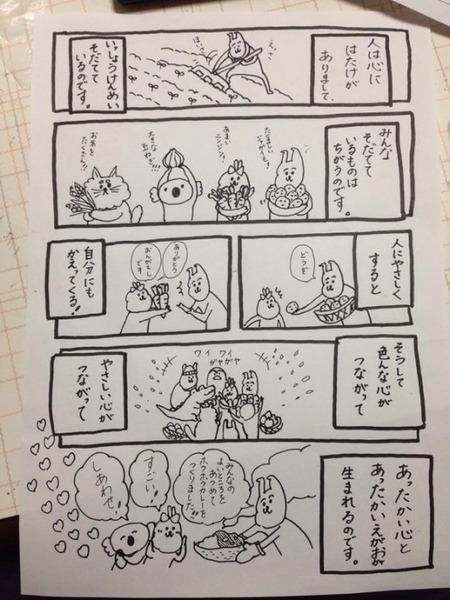 人は心に
はたけが
ありまして、
えっさ
ほいさ
いっしょうけんめい
そだてて
いるのです。
みんな
そだてて
いるものは
ちがうのです。
たのもしい
じゃがいも!
あまい
ニンジン!
大きな
玉ねぎ!!
お米を
たくさん!!
人にやさしく
すると
どうぞ
ありがとう
おんがえし
です
自分にも
かえってくる!
そうして
色んな心が
つながって
ワイ ワイ
ガヤガヤ
やさしい心が
つながって
あったかい心と
あったかいえがおが
生まれるのです。
みんなの
よいところを
あつめて
ホクホクカレーを
つくりました!!
すごい!
しあわせ!